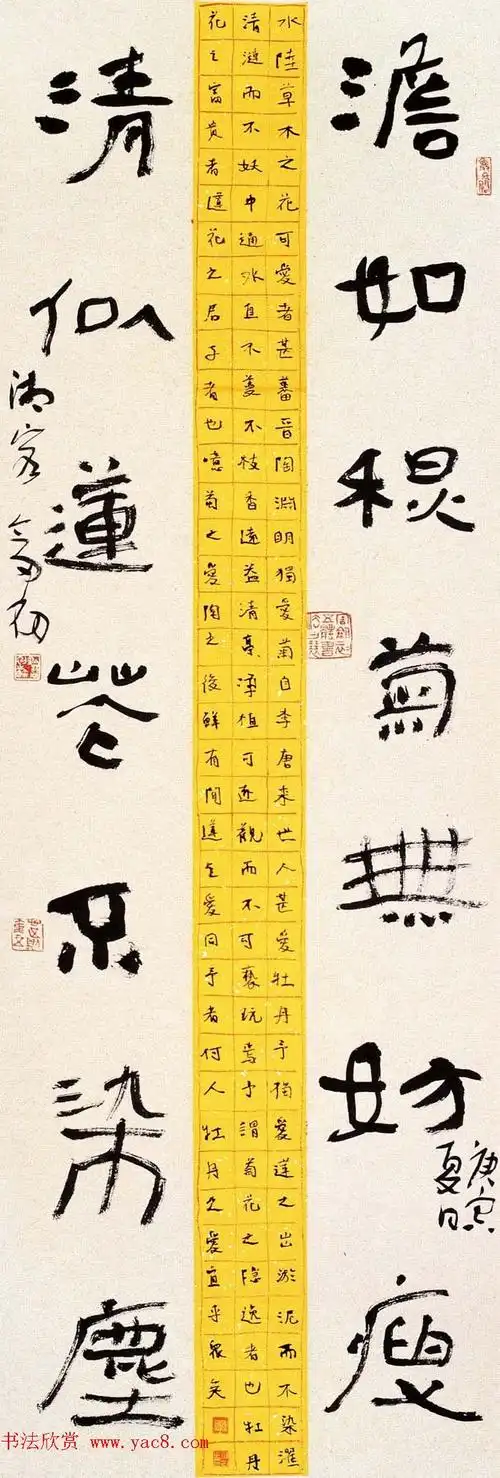 澹如秋菊無妨瘦
庚寅
夏日
水陸草木之花可愛者甚蕃晉陶淵明獨愛菊自李唐來世人甚愛牡丹予獨愛蓮之出淤泥而不染濯
清漣而不妖中通外直不蔓不枝香遠益清亭淨植可近觀而不可褻玩焉予謂菊花之隱逸者也牡丹
花之富貴者蓮花之君子者也噫菊之愛陶之後鮮有聞蓮之愛同予者何人牡丹之愛宜乎眾矣
清似蓮花不染塵
书法欣赏 www.yac8.com